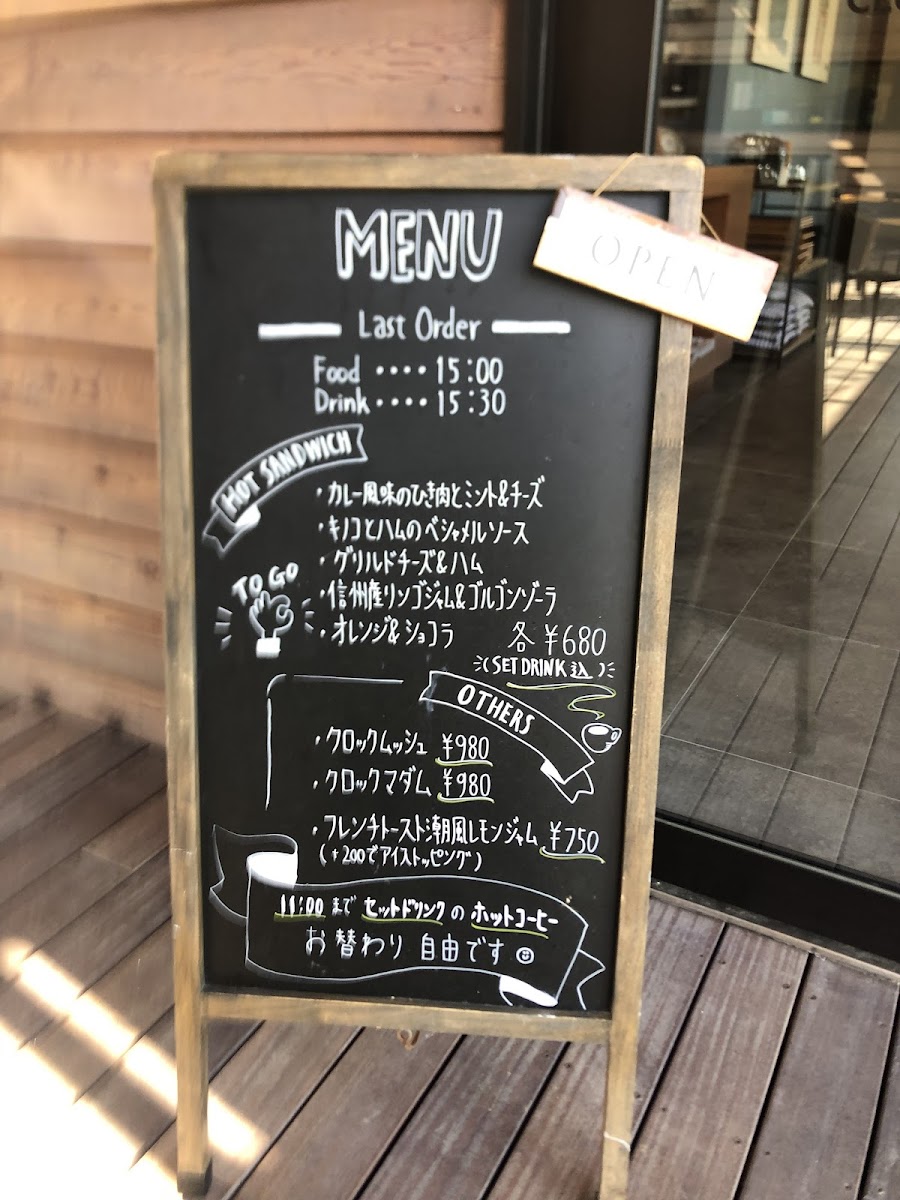 MENU
OPEN
Last Order
Food ････ 15:00
Drink ････ 15:30
HOT SANDWICH
・カレー風味のひき肉とミント&チーズ
・キノコとハムのベシャメルソース
・グリルドチーズ&ハム
・信州産リンゴジャム&ゴルゴンゾーラ
・オレンジ&ショコラ 各 ¥680
(SET DRINK 込)
TO GO
OTHERS
・クロックムッシュ ¥980
・クロックマダム ¥980
・フレンチトースト潮風レモンジャム ¥750
(+200でアイストッピング)
11:00 まで セットドリンク の ホットコーヒー
お替わり 自由です☺